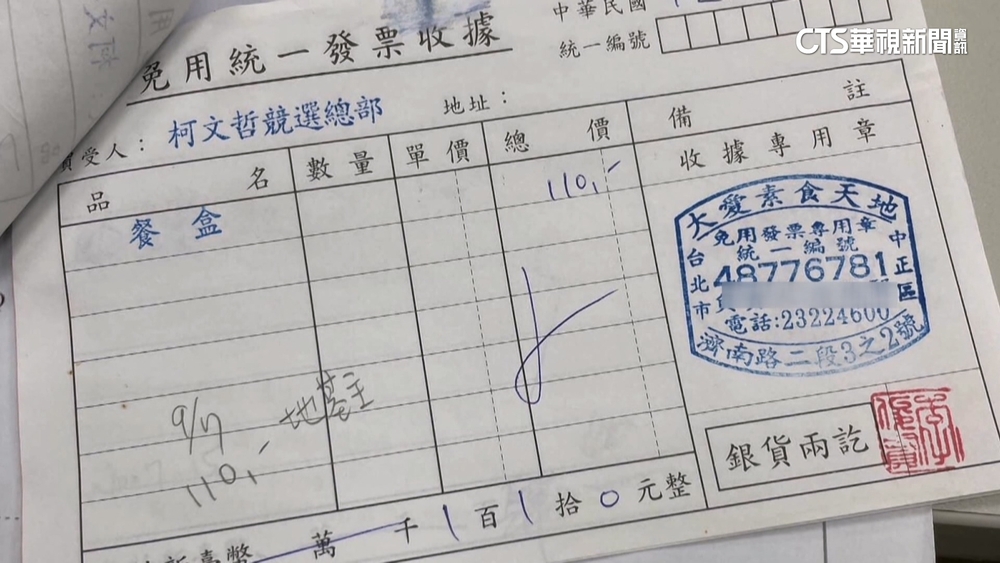 CTS華視新聞資訊
中華民國
免用統一發票收據
統一編號
買受人：柯文哲競選總部 地址：
品名 數量 單價 總價 備註
餐盒 110,-
收據專用章
大愛素食天地
免用發票專用章
統一編號
48776781
台北市 中正區
電話:23224600
濟南路二段3之2號
9/7
110,- 地墓主
銀貨兩訖
新臺幣 萬 千 1 百 1 拾 0 元整